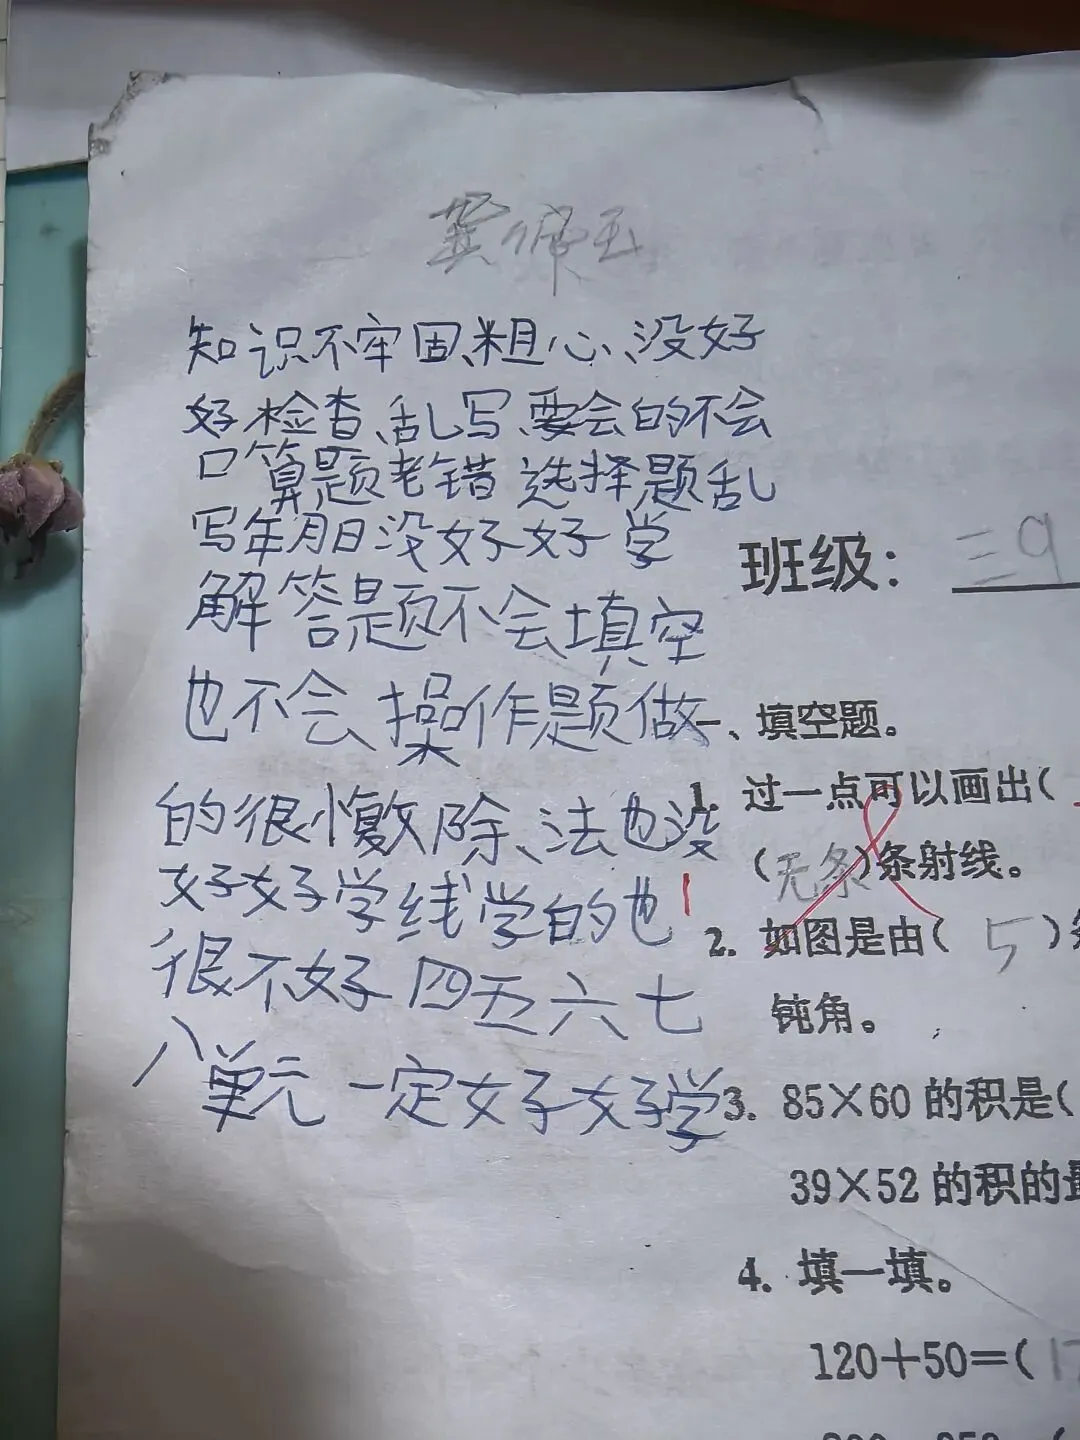 知识不牢固、粗心、没好
好检查、乱写、要会的不会
口算题老错 选择题乱
写年月日没好好学
解答题不会填空
也不会操作题做
的很 除、法也没
好好学线学的也
很不好 四五六七
八单元一定好好学
班级: 三9
一、填空题。
1. 过一点可以画出(
(无条)条射线。
2. 如图是由( 5 )
钝角。
3. 85×60的积是(
39×52的积的
4. 填一填。
120+50=(